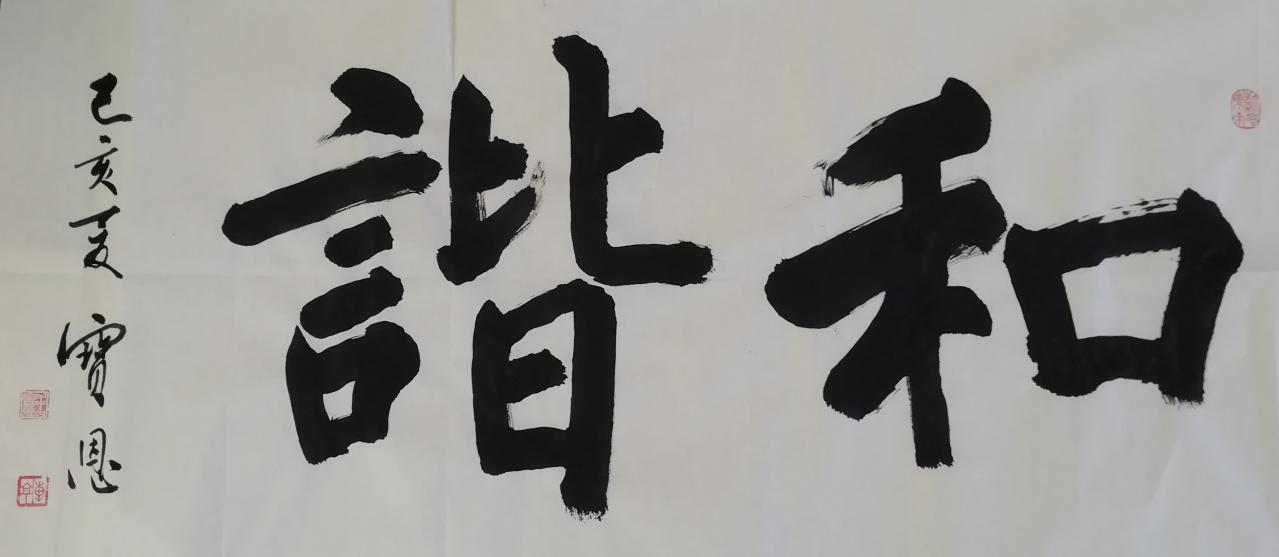 和諧
己亥夏寶恩